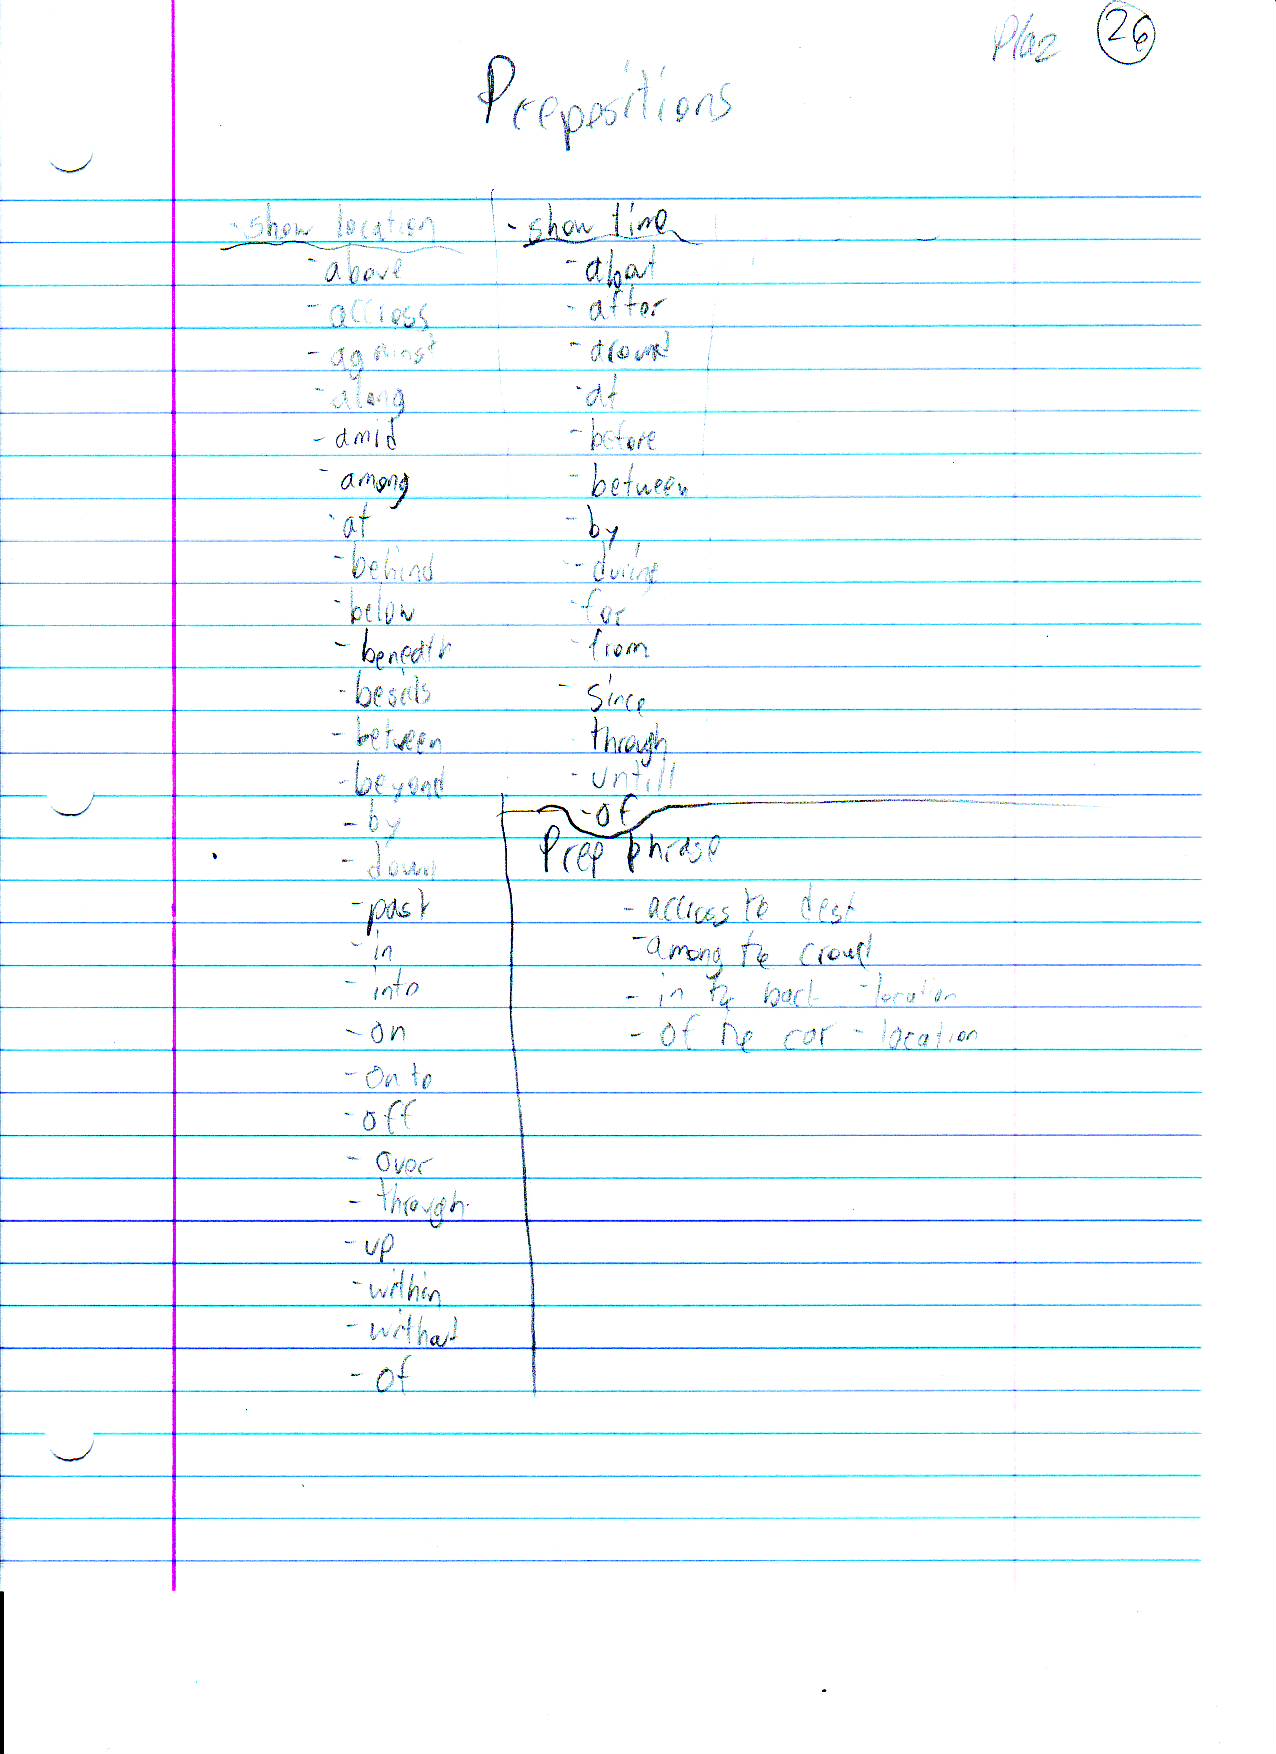 26
Prepositions
-show location
-above
-accross
-against
-along
-amid
-among
-at
-behind
-below
-beneath
-besids
-between
-beyond
-by
-down
-past
-in
-into
-on
-onto
-off
-over
-through
-up
-within
-without
-of
-show time
-about
-after
-around
-at
-before
-between
-by
-during
-for
-from
-since
through
-untill
-of
Prep phrase
-accross the desk
-among the crowd
-in the back -location
-of the car -location